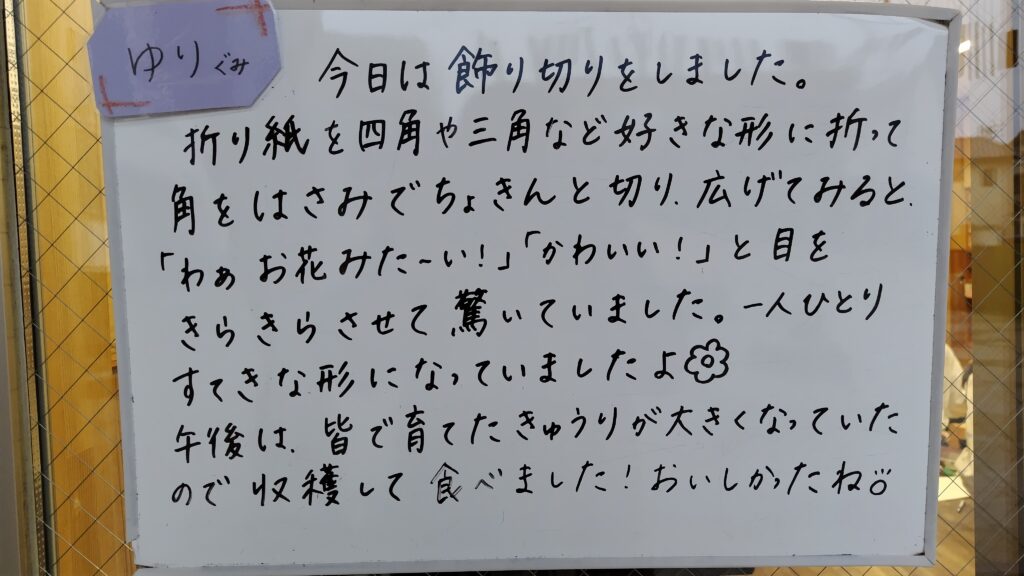 ゆりぐみ
今日は飾り切りをしました。
折り紙を四角や三角など好きな形に折って
角をはさみでちょきんと切り、広げてみると、
「わぁ お花みた〜い!」「かわいい!」と目を
きらきらさせて驚いていました。一人ひとり
すてきな形になっていましたよ
午後は、皆で育てたきゅうりが大きくなっていた
ので収穫して食べました!おいしかったね